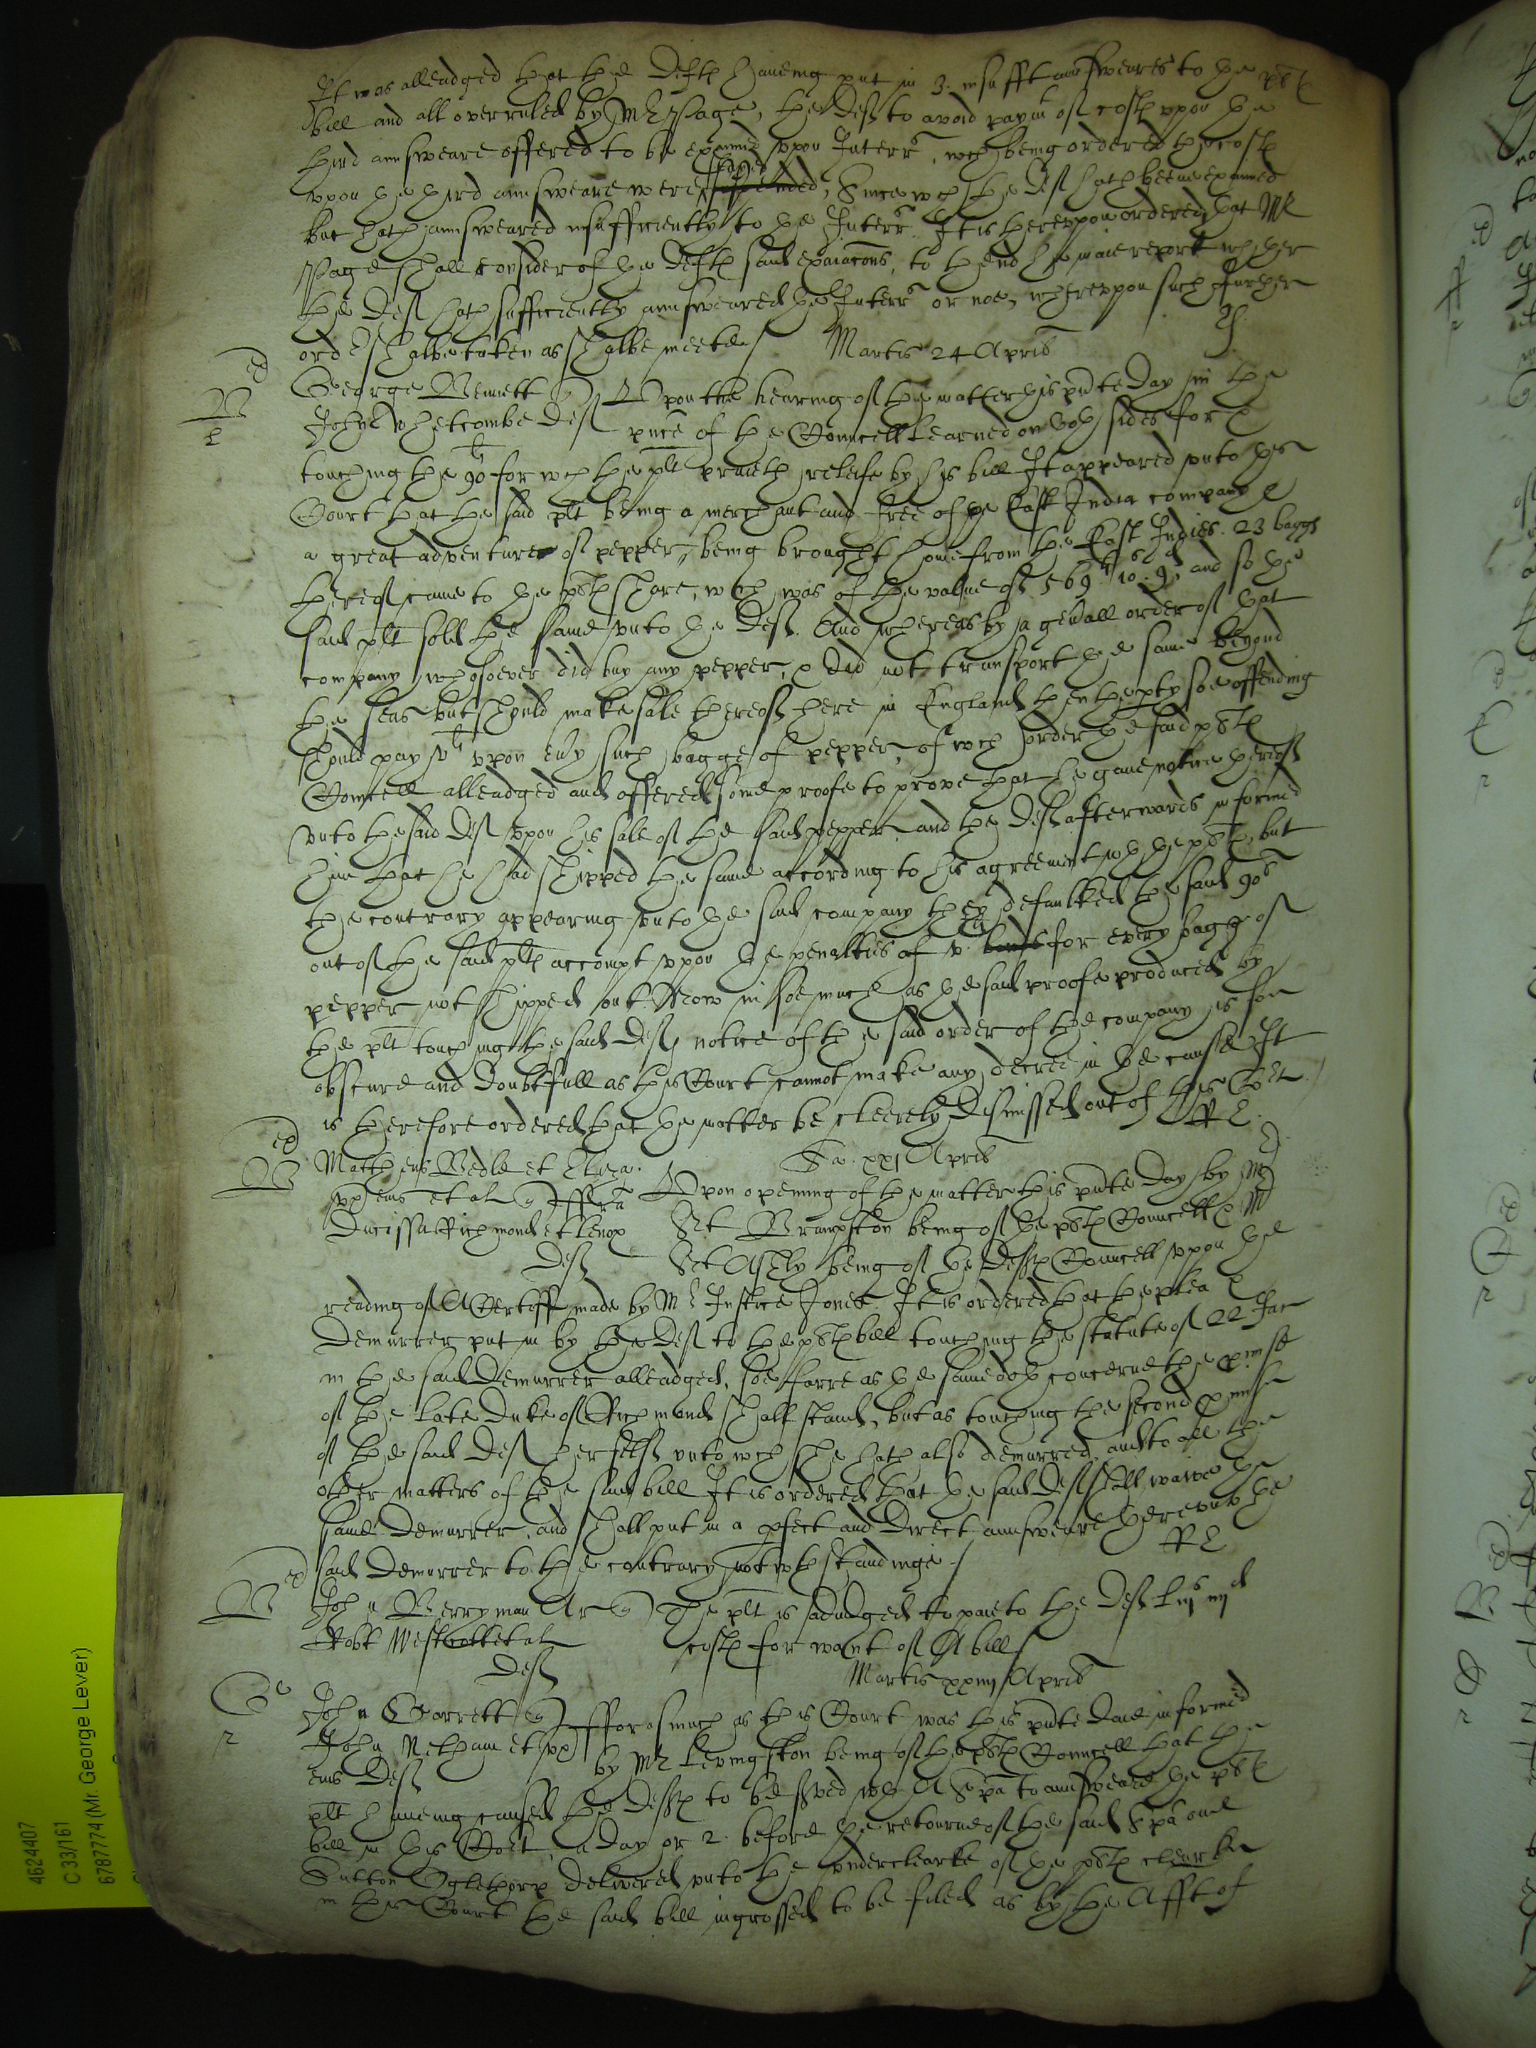 It was alleadged that the Defts haveing put in 3. insufft aunsweares to the plts
bill and all overruled by Mr Page, the deft to avoid paymt of costs upon the
third aunsweare offered to be exmined upon Interr, wch being ordered the costs
upon the third aunsweare were stayed suspended, Since wch the deft hath beene exmined
but hath aunsweared insufficiently to the Interr. It is hereupon ordered that Mr
Page shall consider of the Defts said exaiacons, to thend he maie report whether
the deft hath sufficiently aunsweared the Interr or noe, whereupon such further
order shalbe taken as shalbe meete
Martis 24 Apris
George Bennett Upon the hearing of the matter this pnte day in the
John Whetcombe deft pnce of the Councell learned on both sides for &
touching the 90li for wch the plt praieth releife by his bill It appeared unto this
Court that the said plt being a merchant and free of the East India company &
a great adventurer of pepper, being brought home from the East Indies. 23 baggs
thereof came to the plts share, wch was of the value of 569li 10s 9d and so the
said plt sold the same unto the deft. And whereas by a genall order of that
company whosoever did buy any pepper, & did not transport the same beyond
the seas but should make sale thereof here in England then the pty soe offending
should pay vli upon evy such bagge of pepper, of wch order the said plts
Councell alleadged and offered some proofe to prove that he gave notice thereof
unto the said deft upon his sale of the said pepper, and the deft afterwards informed
him that he had shipped the same according to his agreement wth the plt, but
the contrary appearing unto the said company they defaulked the said 90li
out of the said plts accompt upon the penalties of v li for every bagg of
pepper not shipped out Now in soe much as the said proofe produced by
the plt touching the said defts notice of the said order of the company is soe
obscure and doubtfull as this Court cannot make any decree in the cause It
is therefore ordered that the matter be cleerely dismissed out of this Cort
Sa. xxj Apris
Matheus Bedle et Eliza.
ux eius et al Quer Upon opening of the matter this pnte day by Mr
Ducissa Richmond et Lenox Srt Brampston being of the plts Councell & Mr
Deft Srt Ashly being of the Defts Councell upon the
reading of A Certiff made by Mr Justice Jones. It is ordered that the plea &
demurrer put in by the deft to the plts bill touching the statute of 22 Jac
in the said demurrer alleadged, soe farre as the same doth concerne the pmise
of the late Duke of Richmond shall stand, but as touching the second pmise
of the said deft herselfe unto wch she hath also demurred, and to all the
other matters of the said bill It is ordered that the said deft shall waive the
same demurrer, and shall put in a pfect and direct aunsweare thereunto the
said demurrer to the contrary notwthstandinge
John Berryman Ar The plt is adiudged to paie to the deft
Robt et al costs for want of A bill
Deft
Martis xxiiij Apris
John Garrett Forasmuch as this Court was this pnte daie informed
John Netham et ux by Mr Levingston being of the plts Councell that the
eius Deft
plt haveing caused the defts to be served wth A Spa to aunsweare the plts
bill in this Cort, a day or 2. before the retourne of the said Spa one
Sutton Oglethorp delivered unto the underclearke of the plts clearke
in this Court the said bill ingrossed to be filed as by the Afft of
4624407
C 33/161
6787774 (Mr. George Lever)